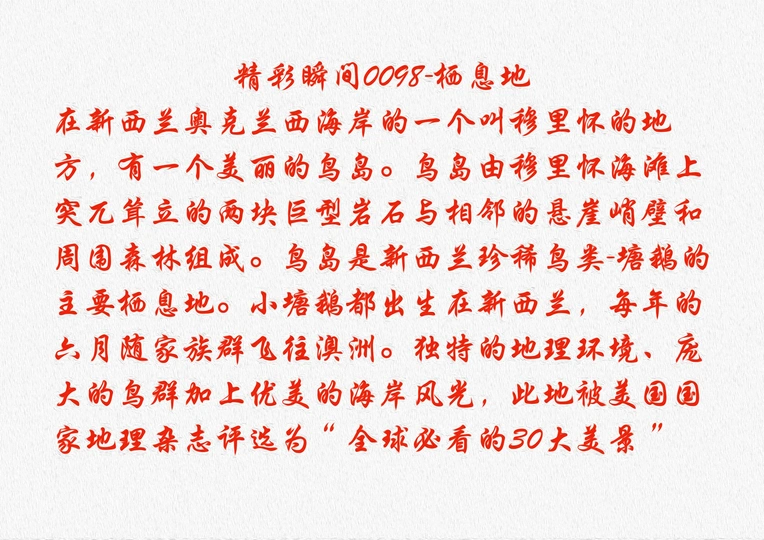 精彩瞬间0098-栖息地
在新西兰奥克兰西海岸的一个叫穆里怀的地
方，有一个美丽的鸟岛。鸟岛由穆里怀海滩上
突兀耸立的两块巨型岩石与相邻的悬崖峭壁和
周围森林组成。鸟岛是新西兰珍稀鸟类-塘鹅的
主要栖息地。小塘鹅都出生在新西兰，每年的
六月随家族群飞往澳洲。独特的地理环境、庞
大的鸟群加上优美的海岸风光，此地被美国国
家地理杂志评选为“全球必看的30大美景”